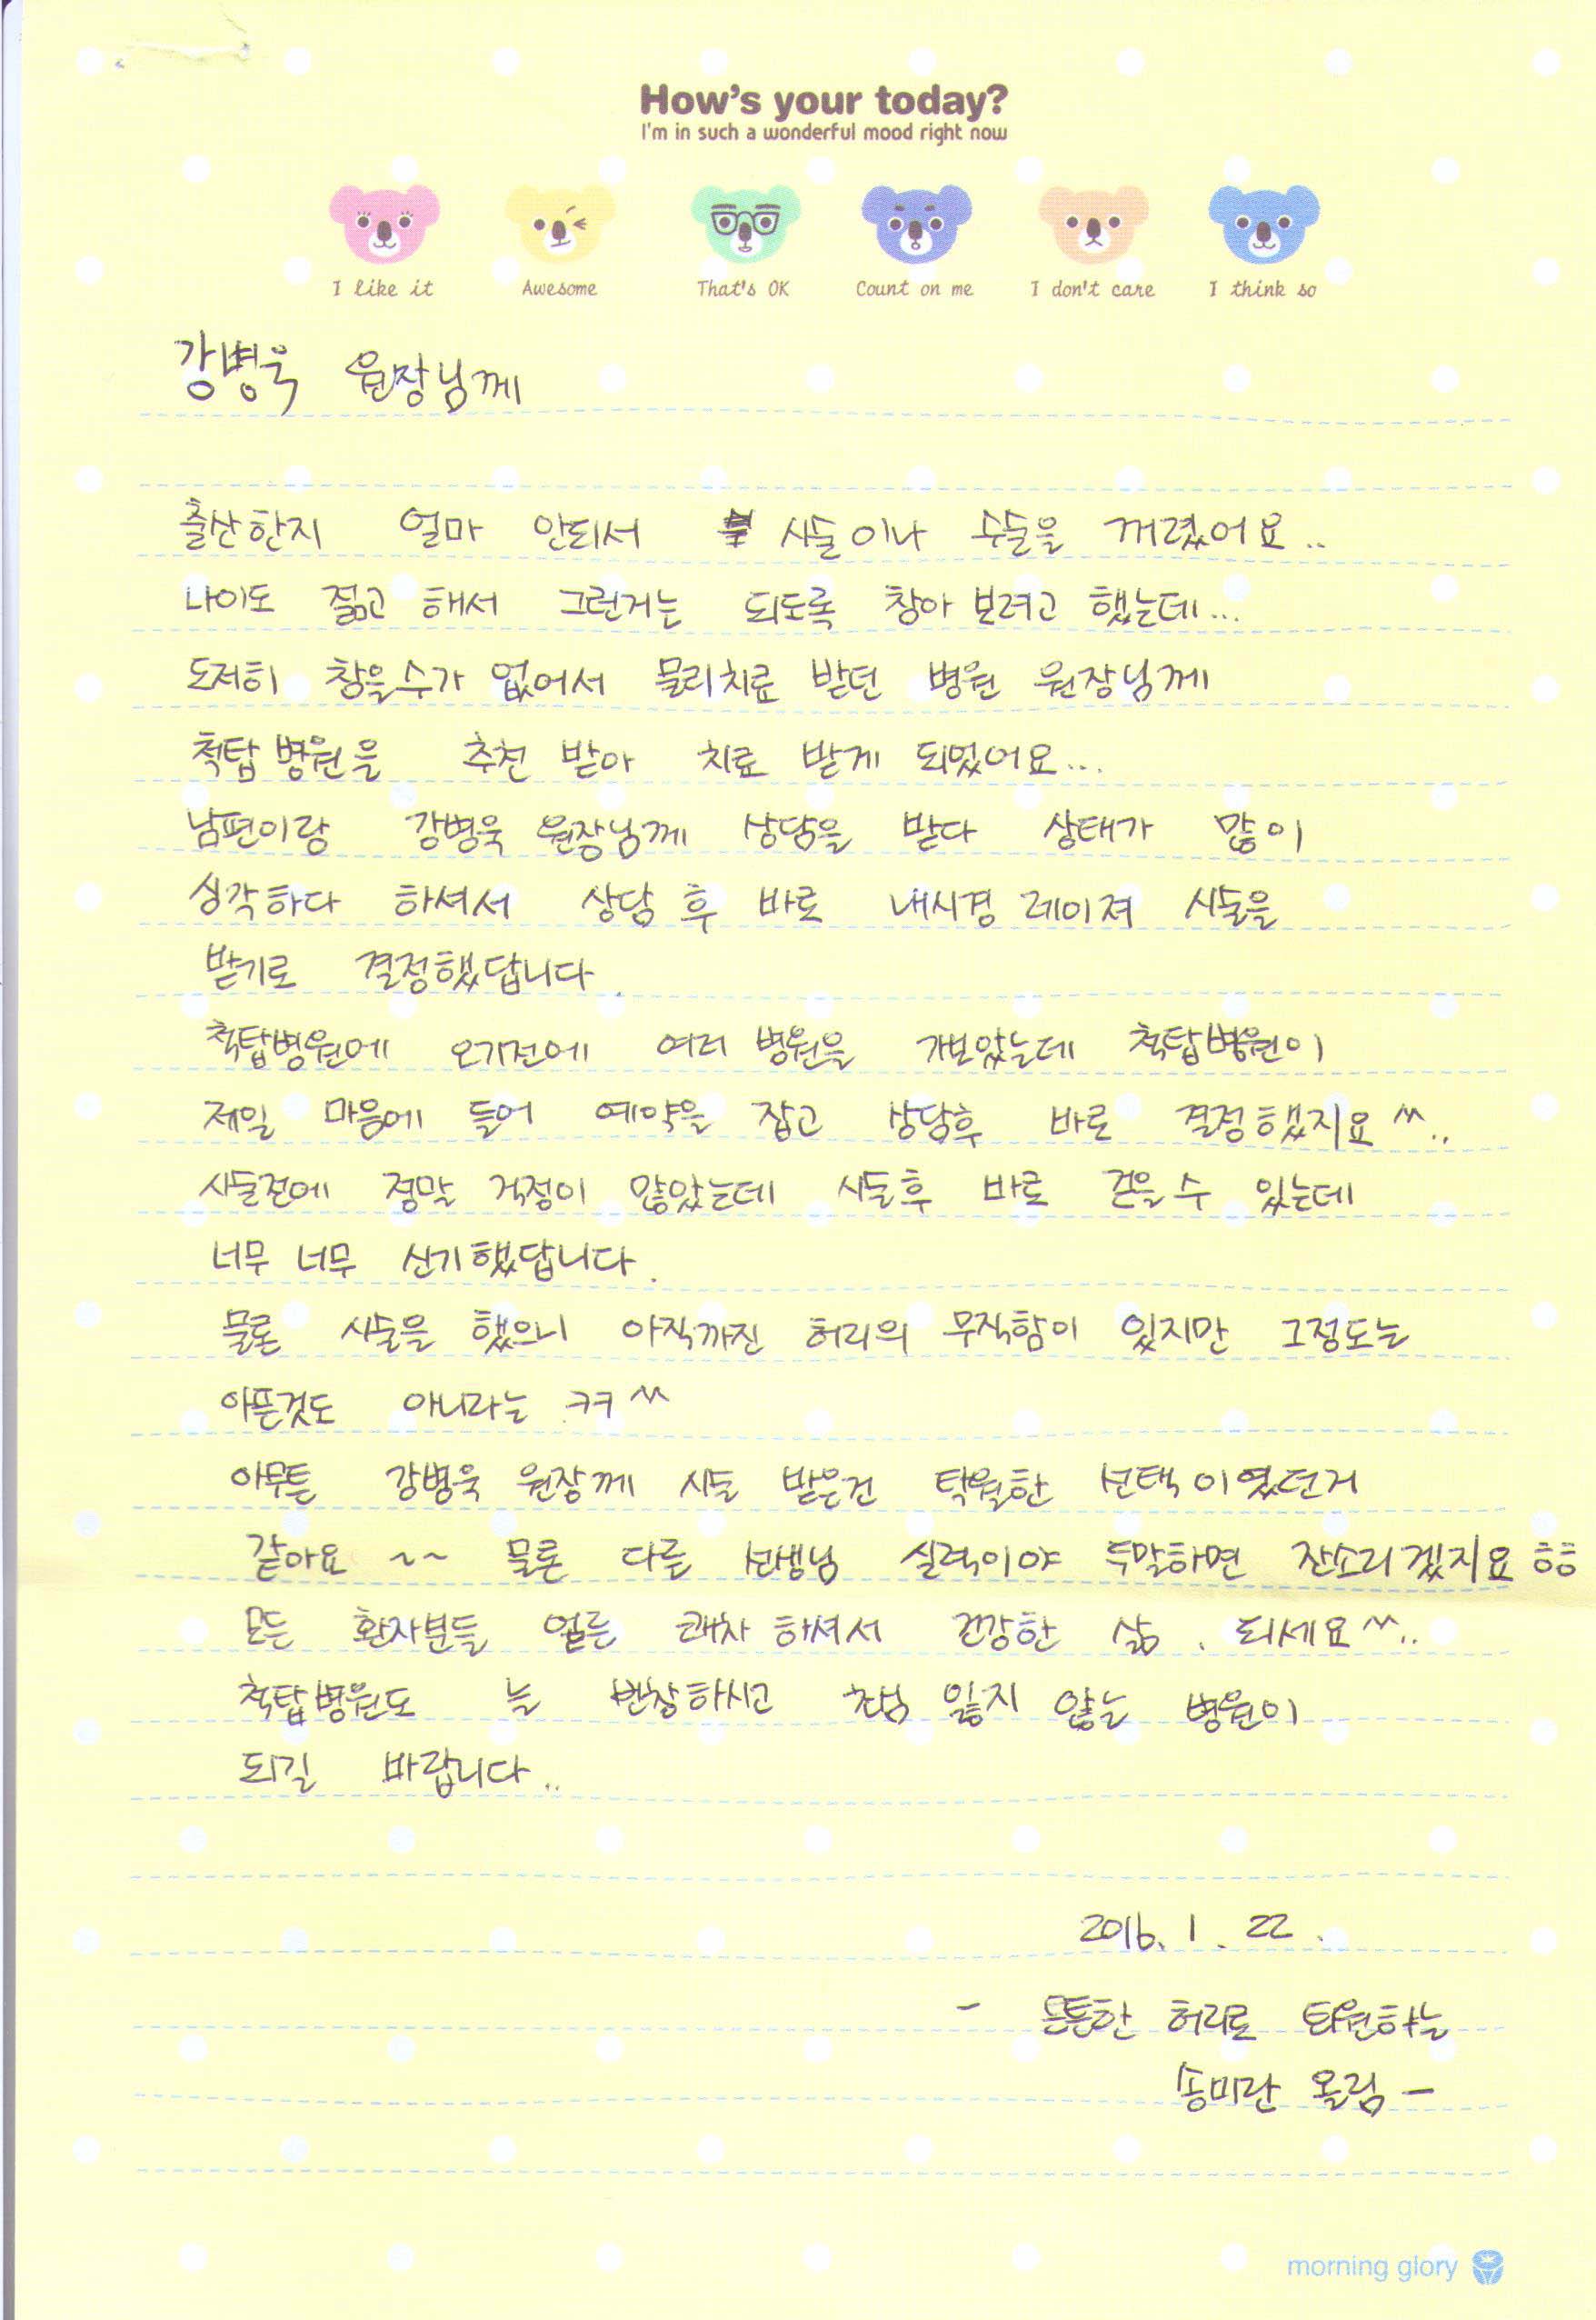 How's your today?
I'm in such a wonderful mood right now
I like it Awesome That's OK Count on me I don't care I think so
강병욱 원장님께
출산한지 얼마 안되서 시술이나 수술을 꺼렸어요..
나이도 젊고 해서 그런거는 되도록 참아 보려고 했는데...
도저히 참을수가 없어서 물리치료 받던 병원 원장님께
척탑병원을 추천 받아 치료 받게 되었어요...
남편이랑 강병욱 원장님께 상담을 받다 상태가 많이
심각하다 하셔서 상담 후 바로 내시경 레이져 시술을
받기로 결정했답니다.
척탑병원에 오기전에 여러 병원을 가보았는데 척탑병원이
제일 마음에 들어 예약을 잡고 상담후 바로 결정했지요^^..
시술전에 정말 걱정이 많았는데 시술후 바로 걷을수 있는데
너무 너무 신기했답니다.
물론 시술을 했으니 아직까진 허리의 무직함이 있지만 그정도는
아픈것도 아니라는 ㅋㅋ^^
아무튼 강병욱 원장께 시술 받은건 탁월한 선택이였던거
같아요 ~~ 물론 다른 선생님 실력이야 두말하면 잔소리겠지요 ㅎㅎ
모든 환자분들 얼른 쾌차 하셔서 건강한 삶. 되세요^^..
척탑병원도 늘 번창하시고 초심 잃지 않는 병원이
되길 바랍니다..
2016. 1. 22.
- 튼튼한 허리로 퇴원하는
송미란 올림 -
morning glory